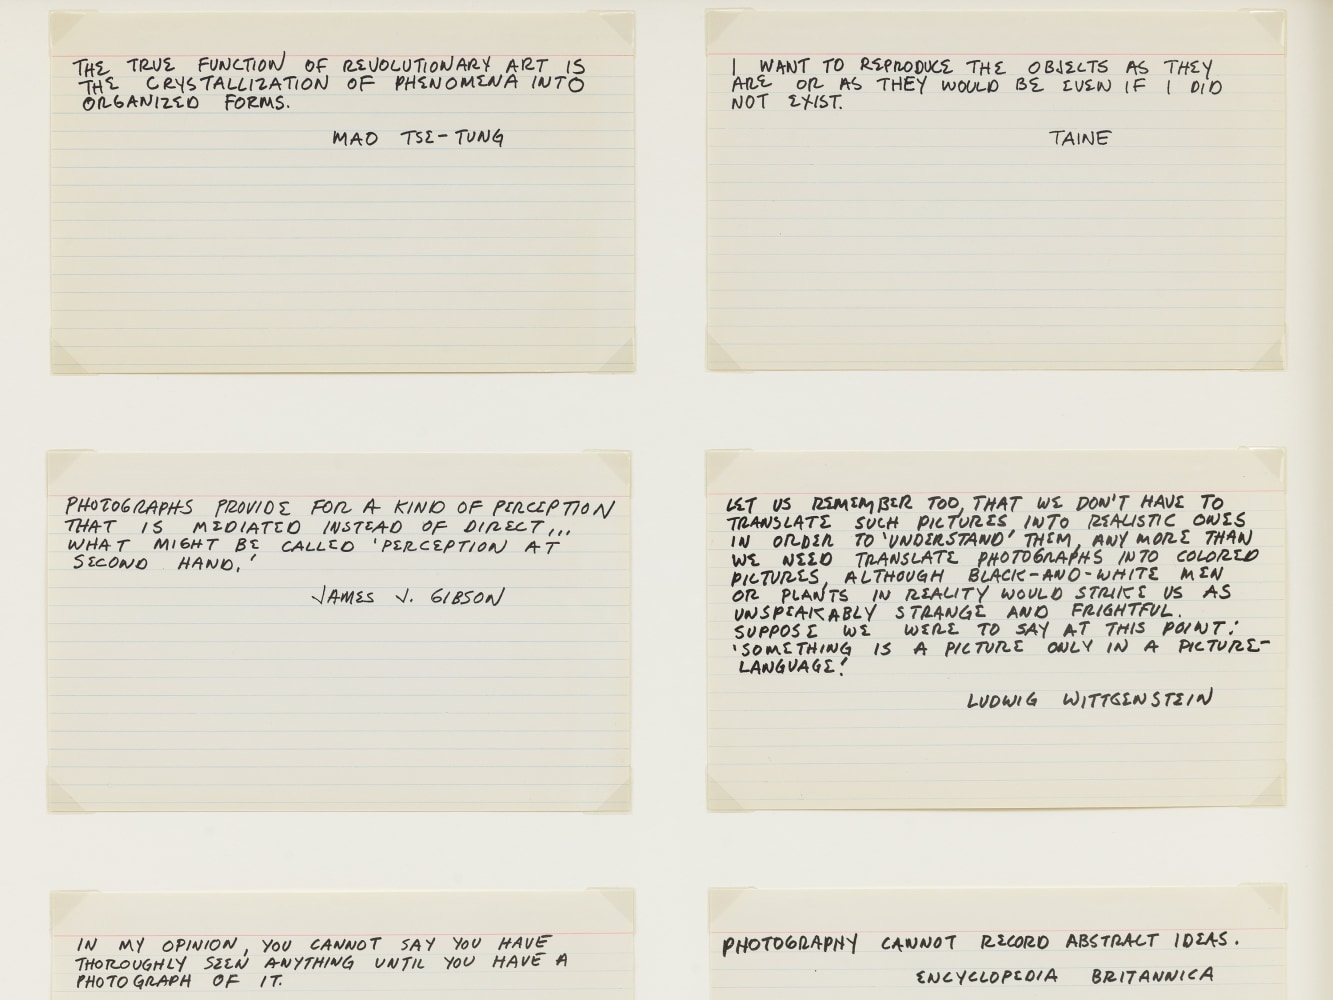 THE TRUE FUNCTION OF REVOLUTIONARY ART IS
THE CRYSTALLIZATION OF PHENOMENA INTO
ORGANIZED FORMS.
MAO TSE-TUNG
I WANT TO REPRODUCE THE OBJECTS AS THEY
ARE OR AS THEY WOULD BE EVEN IF I DID
NOT EXIST.
TAINE
PHOTOGRAPHS PROVIDE FOR A KIND OF PERCEPTION
THAT IS MEDIATED INSTEAD OF DIRECT...
WHAT MIGHT BE CALLED 'PERCEPTION AT
SECOND HAND.'
JAMES J. GIBSON
LET US REMEMBER TOO, THAT WE DON'T HAVE TO
TRANSLATE SUCH PICTURES INTO REALISTIC ONES
IN ORDER TO 'UNDERSTAND' THEM, ANY MORE THAN
WE NEED TRANSLATE PHOTOGRAPHS INTO COLORED
PICTURES, ALTHOUGH BLACK-AND-WHITE MEN
OR PLANTS IN REALITY WOULD STRIKE US AS
UNSPEAKABLY STRANGE AND FRIGHTFUL.
SUPPOSE WE WERE TO SAY AT THIS POINT:
'SOMETHING IS A PICTURE ONLY IN A PICTURE-
LANGUAGE.'
LUDWIG WITTGENSTEIN
IN MY OPINION, YOU CANNOT SAY YOU HAVE
THOROUGHLY SEEN ANYTHING UNTIL YOU HAVE A
PHOTOGRAPH OF IT.
PHOTOGRAPHY CANNOT RECORD ABSTRACT IDEAS.
ENCYCLOPEDIA BRITANNICA